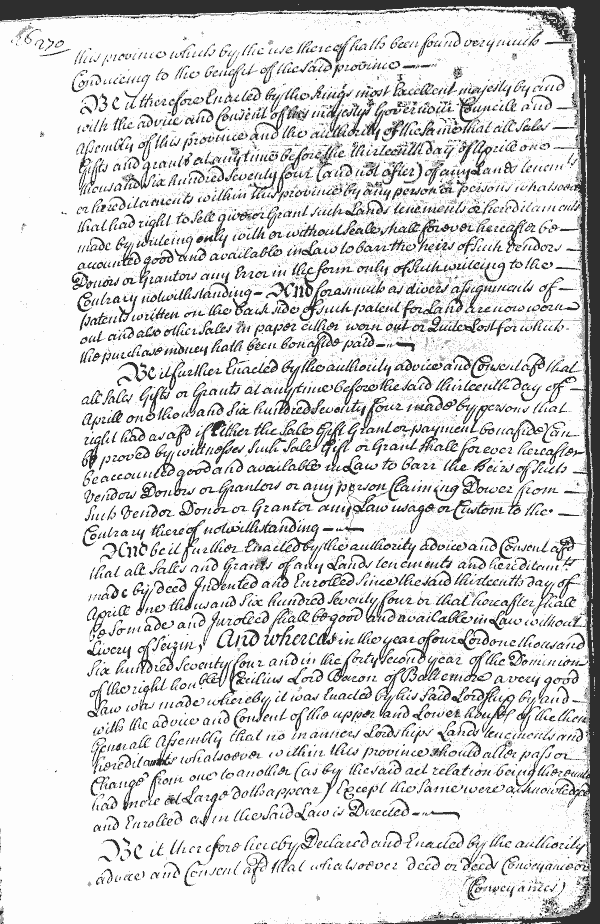 270
this province which by the use thereof hath been found very much
Conducing to the benefit of the said province
Be it therefore Enacted by the Kings most Excellent majesty by and
with the advice and Consent of his majestys Governour Councill and
assembly of this province and the authority of the same that all Sales
Gifts and grants at any time before the thirteenth day of Aprill one
thousand Six hundred Seventy four (and not after) of any Lands tenemts
or hereditaments within this province by any person or persons whatsoever
that had right to Sell give or Grant such Lands tenements or hereditaments
made by writeing only with or without Seale shall for ever hereafter be
accounted good and available in Law to barr the heirs of such Vendors
Donors or Grantors any Error in the form only of such writeing to the
Contrary notwithstanding - And forasmuch as divers assignments of
patents written on the back side of such patent for Land are now worn
out and also other Sales in paper either worn out or Quite Lost for which
the purchase money hath been bonafide paid
Be it further Enacted by the authority advice and Consent afsd that
all Sales Gifts or Grants at any time before the said thirteenth day of
Aprill one thousand Six hundred Seventy four made by persons that
right had as afsd if Either the Sales Gift Grant or payment bonafide Can
be proved by wittnesses Such Sale Gift or Grant shall for ever hereafter
be accounted good and available in Law to barr the Heirs of such
Vendors Donors or Grantors or any person Claiming Dower from
Such Vendor Donor or Grantor any Law usage or Custom to the
Contrary thereof notwithstanding
And be it further Enacted by the authority advice and Consent afsd
that all Sales and Grants of any Lands tenements and hereditamts
made by deed Indented and Enrolled Since the said thirteenth day of
Aprill one thousand Six hundred Seventy four or that hereafter shall
be So made and Inroled shall be good and available in Law without
Livery of Seizin, And whereas in the year of our Lord one thousand
Six hundred Seventy four and in the forty second year of the Dominion
of the right honble Cecilius Lord Baron of Baltemore a very good
Law was made whereby it was Enacted by his Said Lordship by and
with the advice and Consent of the upper and Lower houses of the then
Generall Assembly that no mannors Lordships Lands tenements and
hereditaments whatsoever within this province should alter pass or
Change from one to another (as by the said act relation being thereunto
had more at Large doth appear) Except the Same were acknowledged
and Enrolled as in the Said Law is Directed
Be it therefore hereby Declared and Enacted by the authority
advice and Consent afsd that whatsoever deed or deeds Conveyance or
(Conveyances)